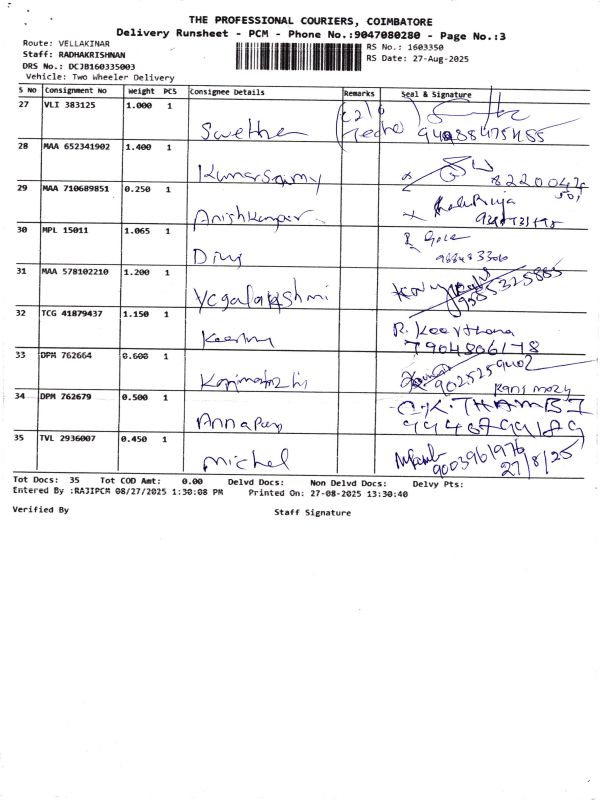 THE PROFESSIONAL COURIERS, COIMBATORE
Delivery Runsheet - PCM - Phone No.:9047080280 - Page No.:3
Route: VELLAKINAR
RS No.: 1603350
Staff: RADHAKRISHNAN
RS Date: 27-Aug-2025
DRS No.: DCJB160335003
Vehicle: Two Wheeler Delivery
S No Consignment No Weight PCS Consignee Details Remarks Seal & Signature
27 VLI 383125 1.000 1 Swetha
28 MAA 652341902 1.400 1 Kumarsamy
29 MAA 710689851 0.250 1 Anishkumar
30 MPL 15011 1.065 1 Divy
31 MAA 578102210 1.200 1 Yogalakshmi
32 TCG 41879437 1.150 1 Keerthy R. Keerthana
7904806178
33 DPM 762664 0.600 1 9025259402
Kanimozy
34 DPM 762679 0.500 1 C.K. THAMBI
35 TVL 2936007 0.450 1 Michel 9003961976
27/8/25
Tot Docs: 35 Tot COD Amt: 0.00 Delvd Docs: Non Delvd Docs: Delvy Pts:
Entered By :RAJIPCM 08/27/2025 1:30:08 PM Printed On: 27-08-2025 13:30:40
Verified By Staff Signature